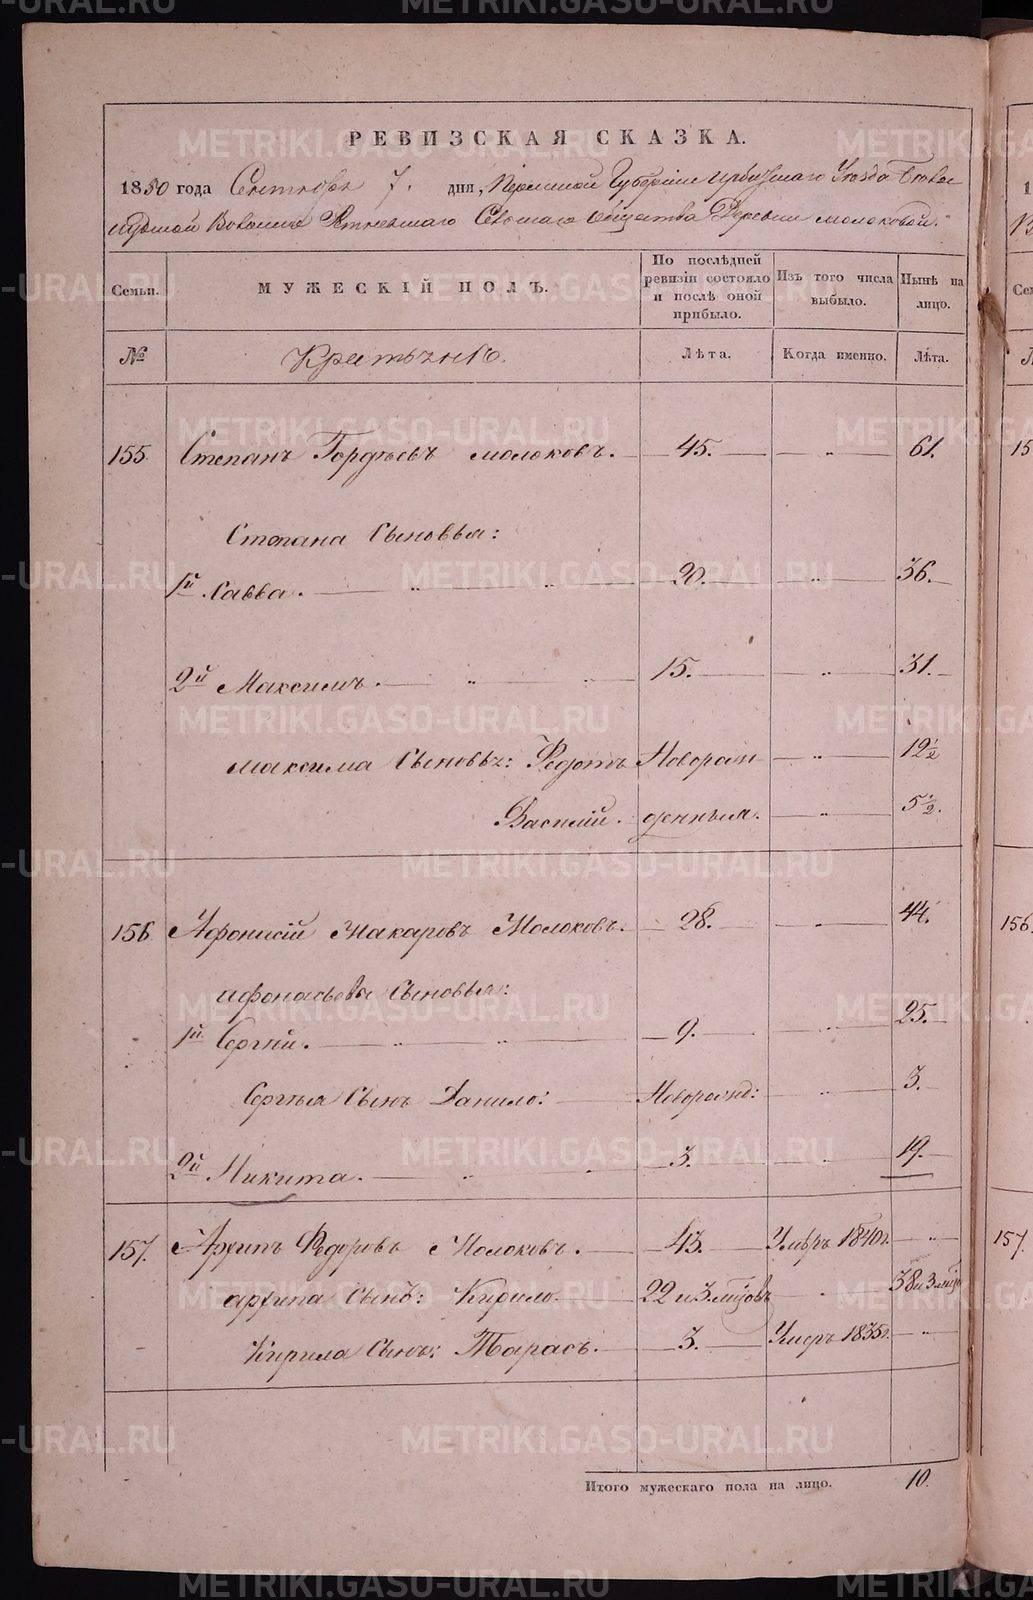 РЕВИЗСКАЯ СКАЗКА.
1850 года Сентября 7. дня, Пермской Губернии Ирбитскаго Уезда
Волости Сельскаго Общества Деревни Молоковой.
Семьи. МУЖЕСКІЙ ПОЛЪ. По послѣдней ревизіи состояло и послѣ оной прибыло. Изъ того числа выбыло. Нынѣ на лицо.
№ Крестьянъ. Лѣта. Когда именно. Лѣта.
155. Степанъ Гордѣевъ Молоковъ. 45. „ 61.
Степана Сыновья:
1й Савва. „ „ 20. „ 36.
2й Максимъ. „ „ 15. „ 31.
Максима Сыновья: Федотъ Новорож- „ 12½
Василій. денныя. „ 5½.
156 Афонасій Макаровъ Молоковъ. 28. „ 44.
Афонасьевы Сыновья:
1й Сергій. „ „ 9. „ 25.
Сергѣя Сынъ Данило: Новорожд: „ 3.
2й Никита. „ „ 3. „ 19.
157. Архипъ Федоровъ Молоковъ. 43. Умеръ 1840г. „
Архипа Сынъ: Кирило. 22 и 3 мѣсцовъ „ 38 и 3 мѣсц
Кирила Сынъ: Тарасъ. 3. Умеръ 1835г. „
Итого мужескаго пола на лицо. 10.
15
156.
157
METRIKI.GASO-URAL.RU